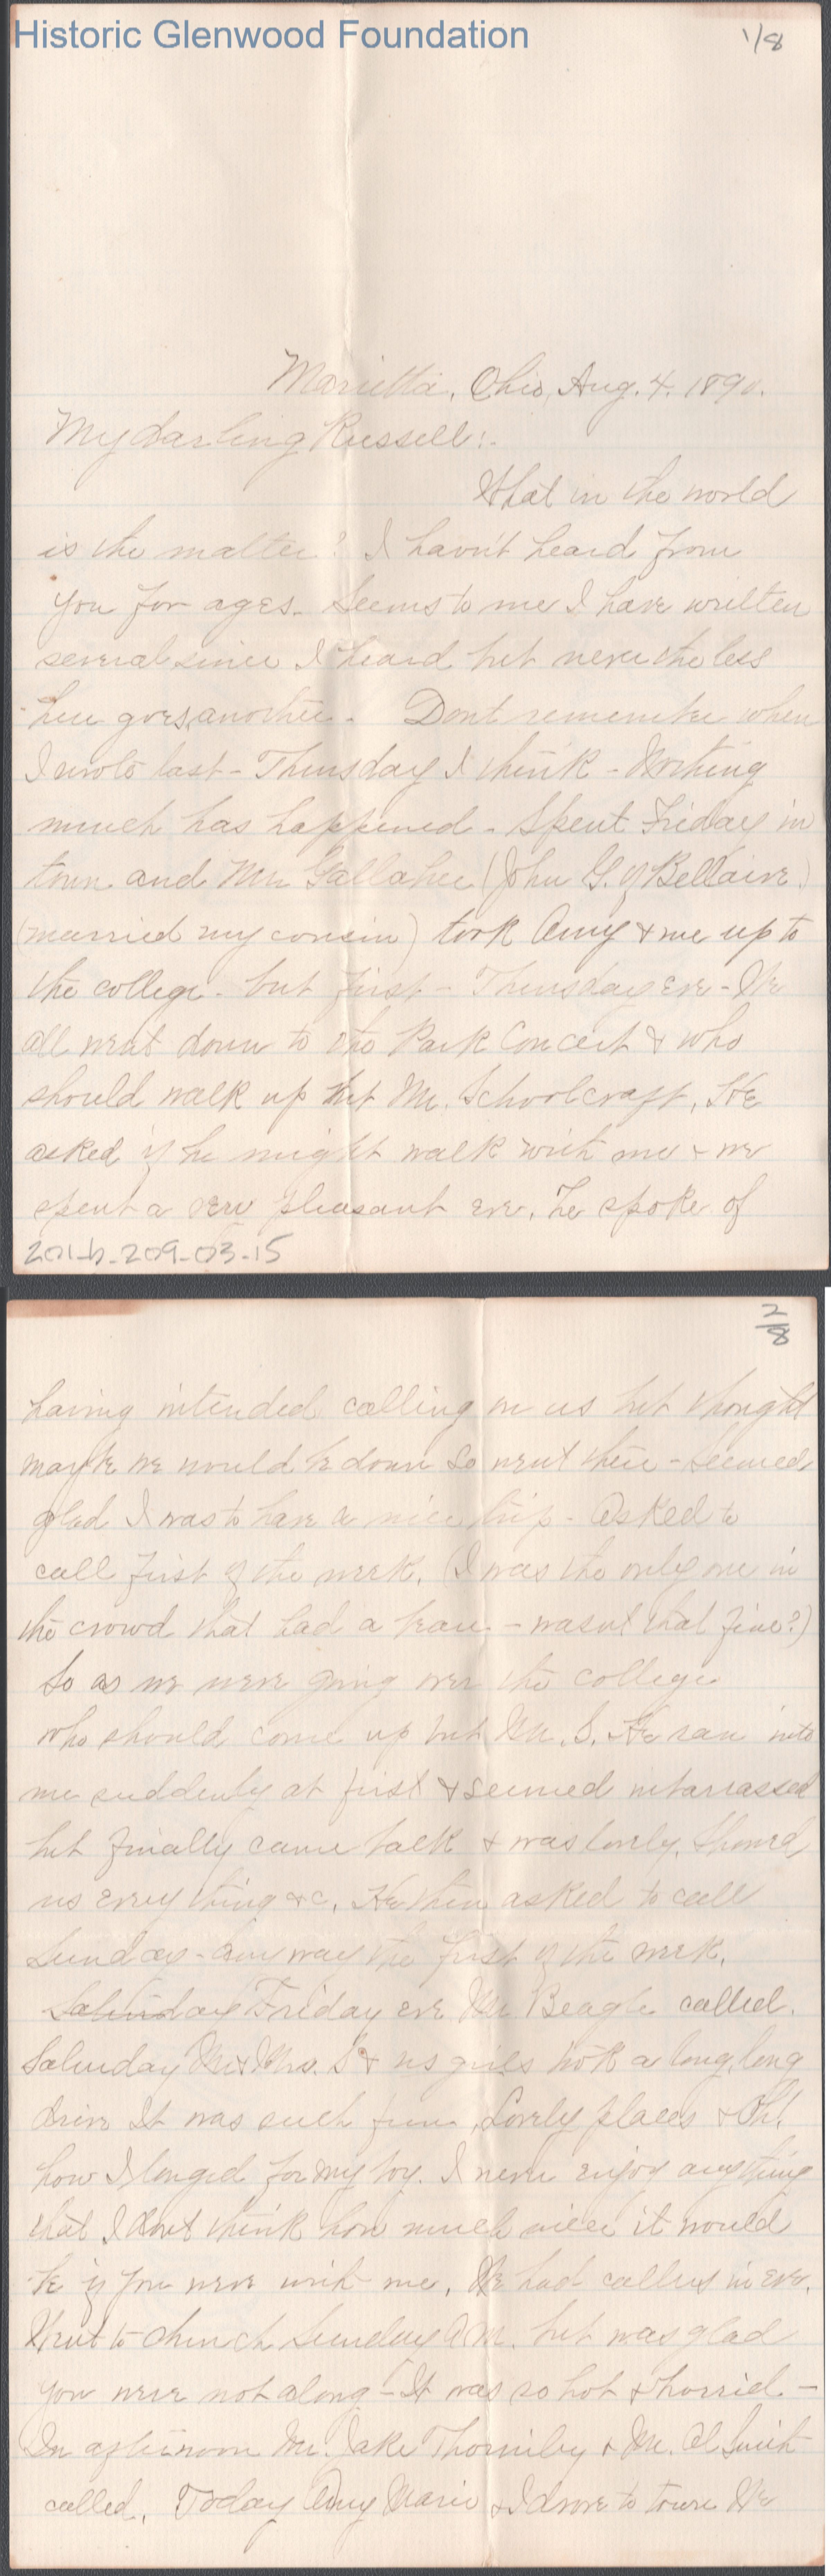 Historic Glenwood Foundation
1/8
Marietta, Ohio, Aug. 4. 1890.
My darling Russell:-
What in the world
is the matter? I havn't heard from
you for ages. Seems to me I have written
several since I heard but nevertheless
here goes another. Dont remember when
I wrote last - Thursday I think - Nothing
much has happened. Spent Friday in
town and Mr. Gallaher (John G. of Bellaire)
(married my cousin) took Amy & me up to
the college. but first - Thursday eve - We
all went down to the Park Concert & who
should walk up but Mr. Schoolcraft. He
asked if he might walk with me & we
spent a very pleasant eve. He spoke of
201-b-209-03-15
2/8
having intended calling on us but thought
maybe we would be down so went there - Seemed
glad I was to have a nice trip - Asked to
call first of the week. (I was the only one in
the crowd that had a beau - wasnt that fine?)
So as we were going over the college
who should come up but Mr. S. He ran into
me suddenly at first & seemed embarrassed
but finally came back & was lovely. Showed
us every thing &c. He then asked to call
Sunday - Anyway the first of the week.
Saturday Friday eve Mr Beagle called.
Saturday Mr & Mrs. S & us girls took a long, long
drive It was such fun. Lovely places & Oh!
how I longed for my boy. I never enjoy anything
that I dont think how much nicer it would
be if you were with me. We had callers in eve.
Went to church Sunday A.M. but was glad
you were not along - It was so hot & horrid -
In afternoon Mr. Jake Thorniley & Mr. Al Smith
called. Today Amy Marie & I drove to town We